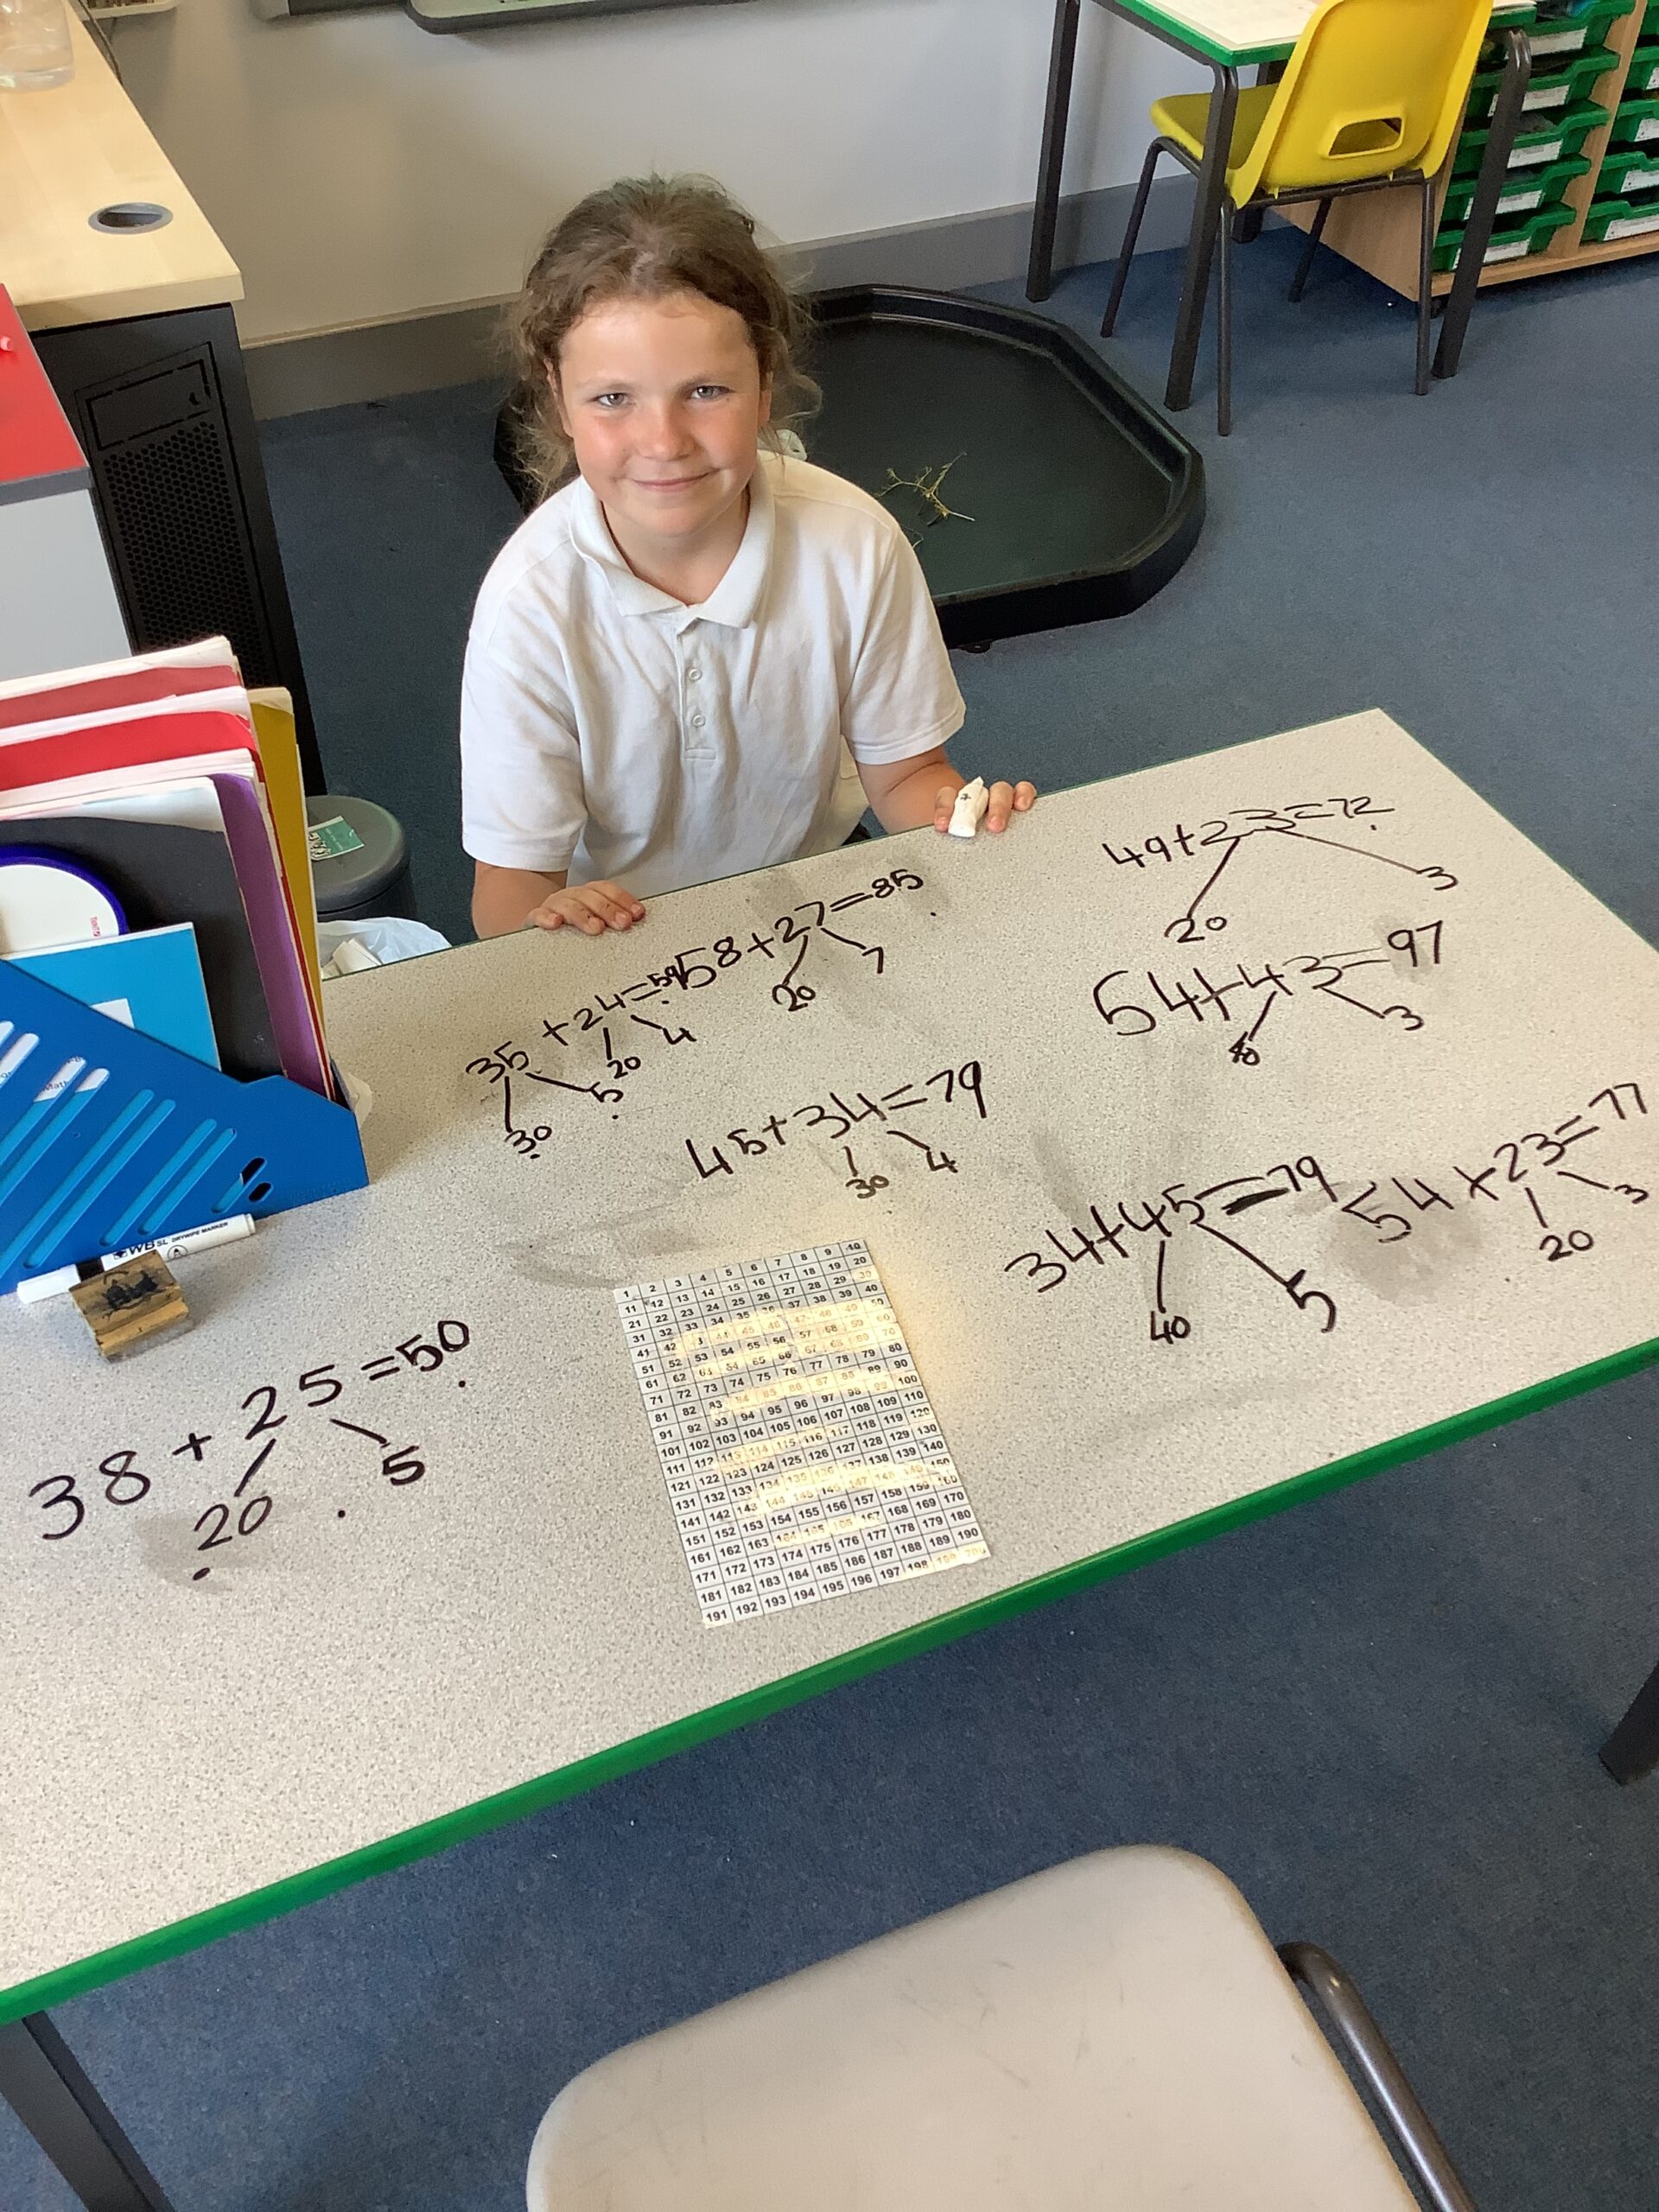 49+23=72
20 3
58+27=85
20 7
54+43=97
3
35+24=59
20 4
30 5
45+34=79
30 4
54+23=77
20 3
34+45=79
40 5
WB SL DRYWIPE MARKER
38+25=50
20 5
1 2 3 4 5 6 7 8 9 10
11 12 13 14 15 16 17 18 19 20
21 22 23 24 25 26 27 28 29
31 32 33 34 35 36 37 38 39 40
41 42 44 45 46 47 48 49 50
51 52 53 54 55 56 57 58 59 60
61 62 63 64 65 66 67 68 69 70
71 72 73 74 75 76 77 78 79 80
81 82 83 84 85 86 87 88 89 90
91 92 93 94 95 96 97 98 99 100
101 102 103 104 105 106 107 108 109 110
111 112 113 114 115 116 117 118 119 120
121 122 123 124 125 126 127 128 129 130
131 132 133 134 135 136 137 138 139 140
141 142 143 144 145 146 147 148 149 150
151 152 153 154 155 156 157 158 159 160
161 162 163 164 165 166 167 168 169 170
171 172 173 174 175 176 177 178 179 180
181 182 183 184 185 186 187 188 189 190
191 192 193 194 195 196 197 198 199 200